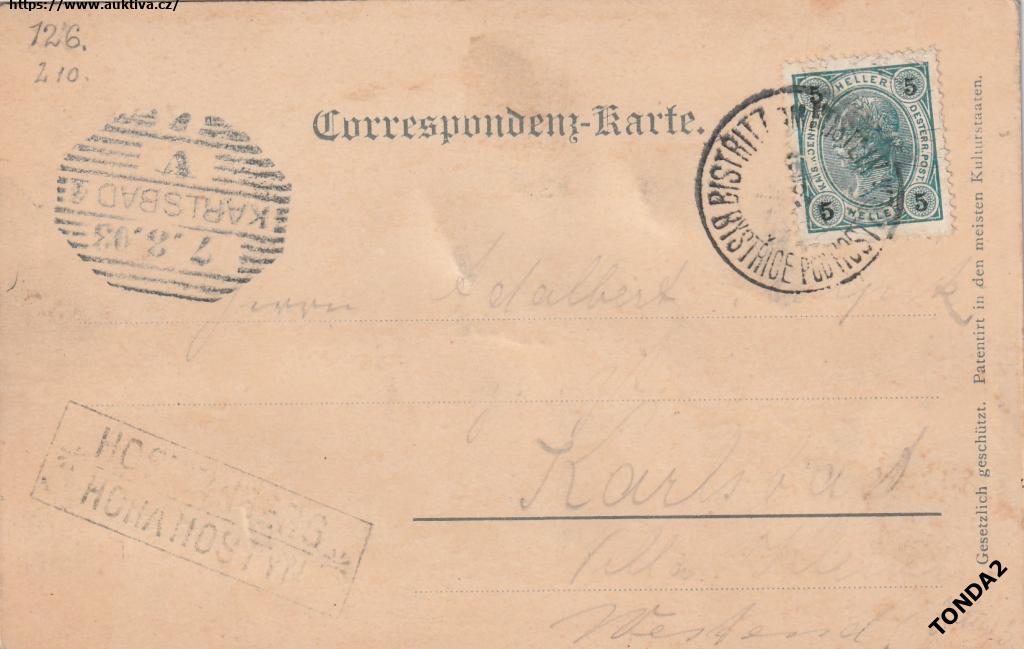 https://www.auktiva.cz/
126.
210.
Correspondenz-Karte.
5 HELLER 5
KAIS. KOENIGL. OESTERR. POST
5 HELLER 5
BISTRITZ
BYSTŘICE POD HOST
KARLSBAD
7.8.03
Herrn Adalbert
Karlsbad
Westend
HOSTEINBERG
HORA HOSTÝN
Gesetzlich geschützt. Patentirt in den meisten Kulturstaaten.
TONDA2